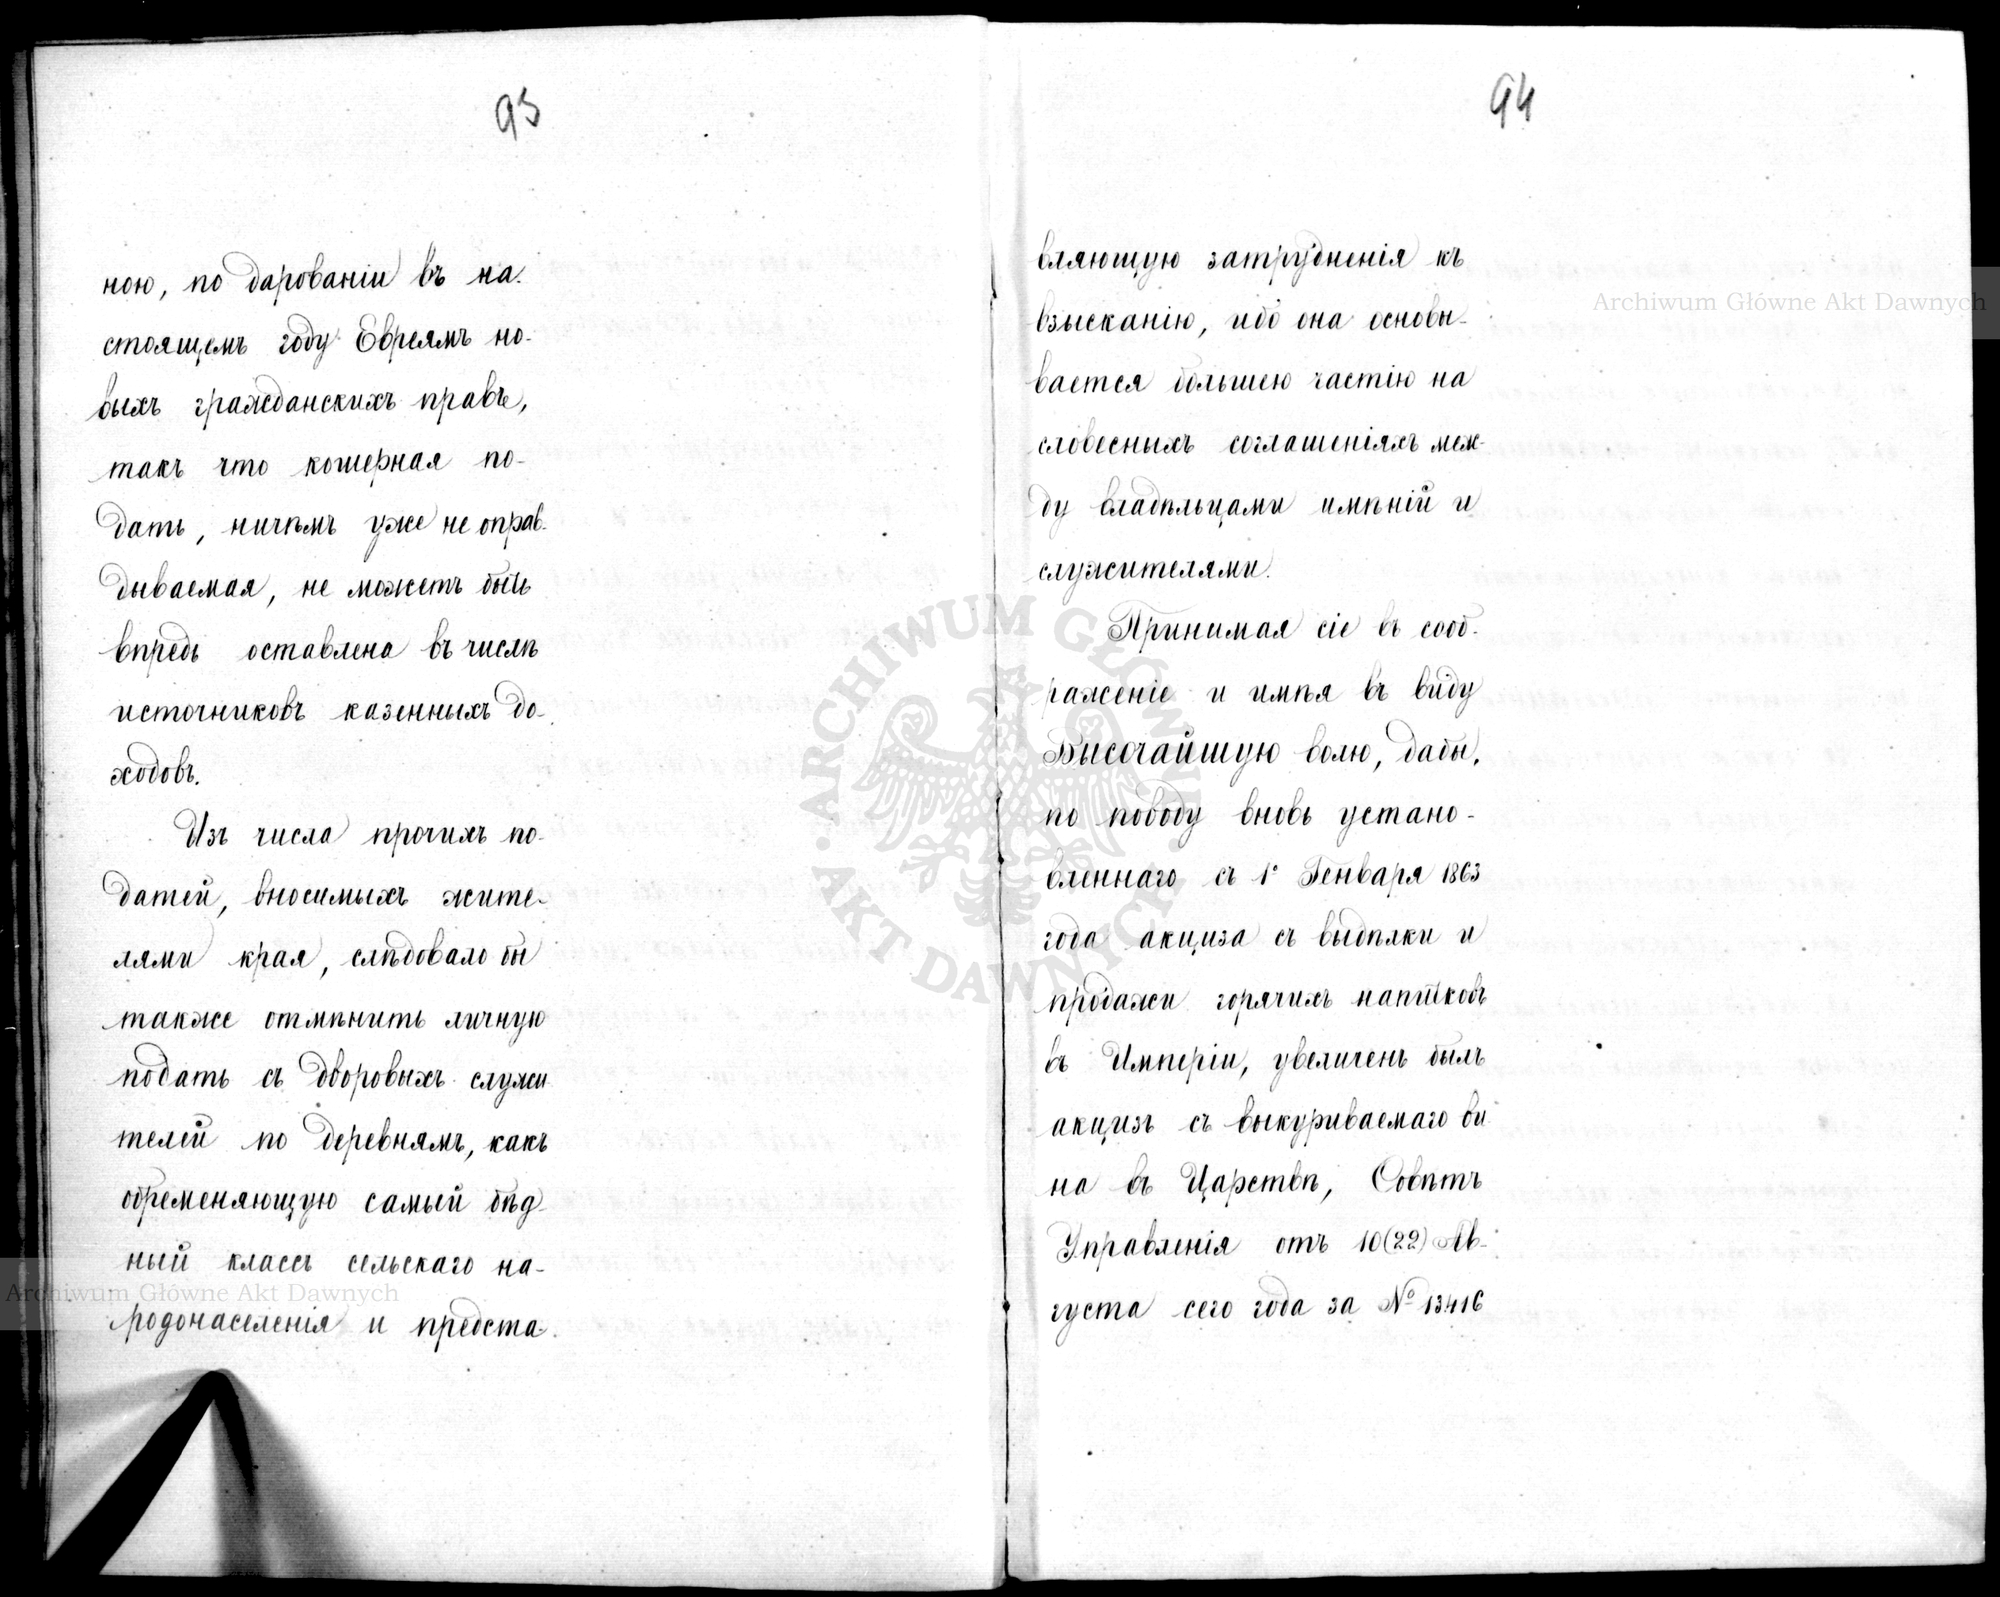 93
ною, по дарованіи въ на-
стоящемъ году Евреямъ но-
выхъ гражданскихъ правъ,
такъ что кошерная по-
дать, ничѣмъ уже не оправ-
дываемая, не можетъ быть
впредь оставлена въ числѣ
источниковъ казенныхъ до-
ходовъ.
Изъ числа прочихъ по-
датей, вносимыхъ жите-
лями края, слѣдовало бы
также отмѣнить личную
подать съ дворовыхъ служи
телей по деревнямъ, какъ
обременяющую самый бѣд-
ный классъ сельскаго на-
родонаселенія и предста-
94
вляющую затрудненія къ
взысканію, ибо она основы-
вается большею частію на
словесныхъ соглашеніяхъ меж-
ду владѣльцами имѣній и
служителями.
Принимая сіе въ сооб-
раженіе и имѣя въ виду
Высочайшую волю, дабы,
по поводу вновь устано-
вленнаго съ 1º Генваря 1863
года акциза съ выдѣлки и
продажи горячихъ напитковъ
въ Имперіи, увеличенъ былъ
акцизъ съ выкуриваемаго ви-
на въ Царствѣ, Совѣтъ
Управленія отъ 10(22) Ав-
густа сего года за № 13416
Archiwum Główne Akt Dawnych
Archiwum Główne Akt Dawnych
ARCHIWUM GŁÓWNE · AKT DAWNYCH ·